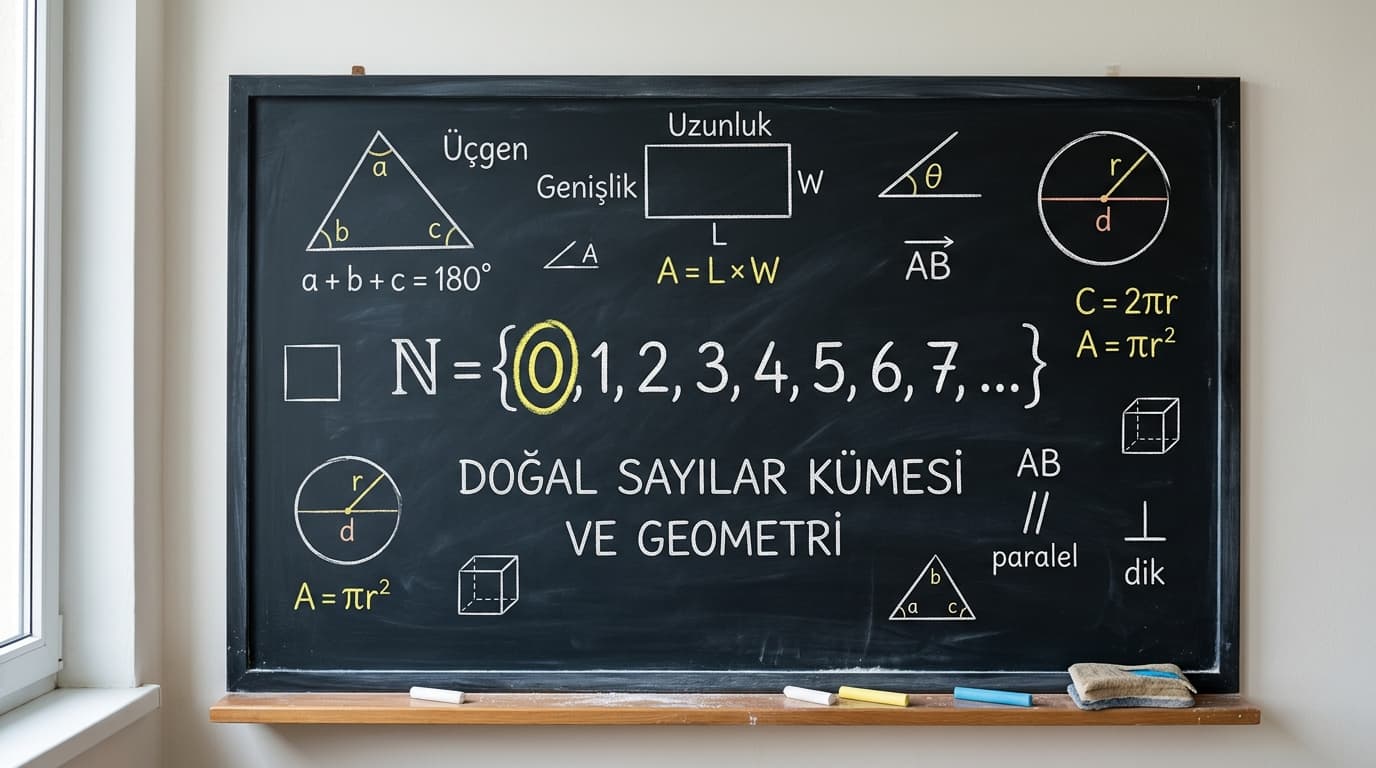 Üçgen
a
b
c
a + b + c = 180°
Uzunluk
Genişlik
W
L
A = L × W
∠A
θ
AB
r
d
C = 2πr
A = πr²
ℕ = {0, 1, 2, 3, 4, 5, 6, 7, ...}
DOĞAL SAYILAR KÜMESİ
VE GEOMETRİ
r
d
A = πr²
AB
//
paralel
⊥
dik
b
a
c